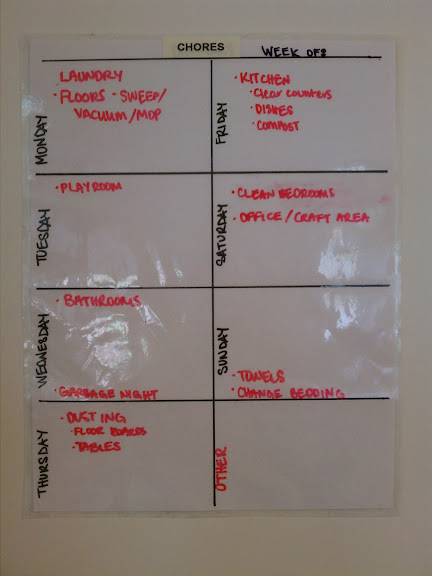 CHORES
WEEK OF:
MONDAY
LAUNDRY
• FLOORS - SWEEP/
VACUUM/MOP
TUESDAY
• PLAYROOM
WEDNESDAY
• BATHROOMS
• GARBAGE NIGHT
THURSDAY
• DUSTING
• FLOOR BOARDS
• TABLES
FRIDAY
• KITCHEN
• Clear counters
• DISHES
• COMPOST
SATURDAY
• CLEAN BEDROOMS
• OFFICE/CRAFT AREA
SUNDAY
• TOWELS
• CHANGE BEDDING
OTHER